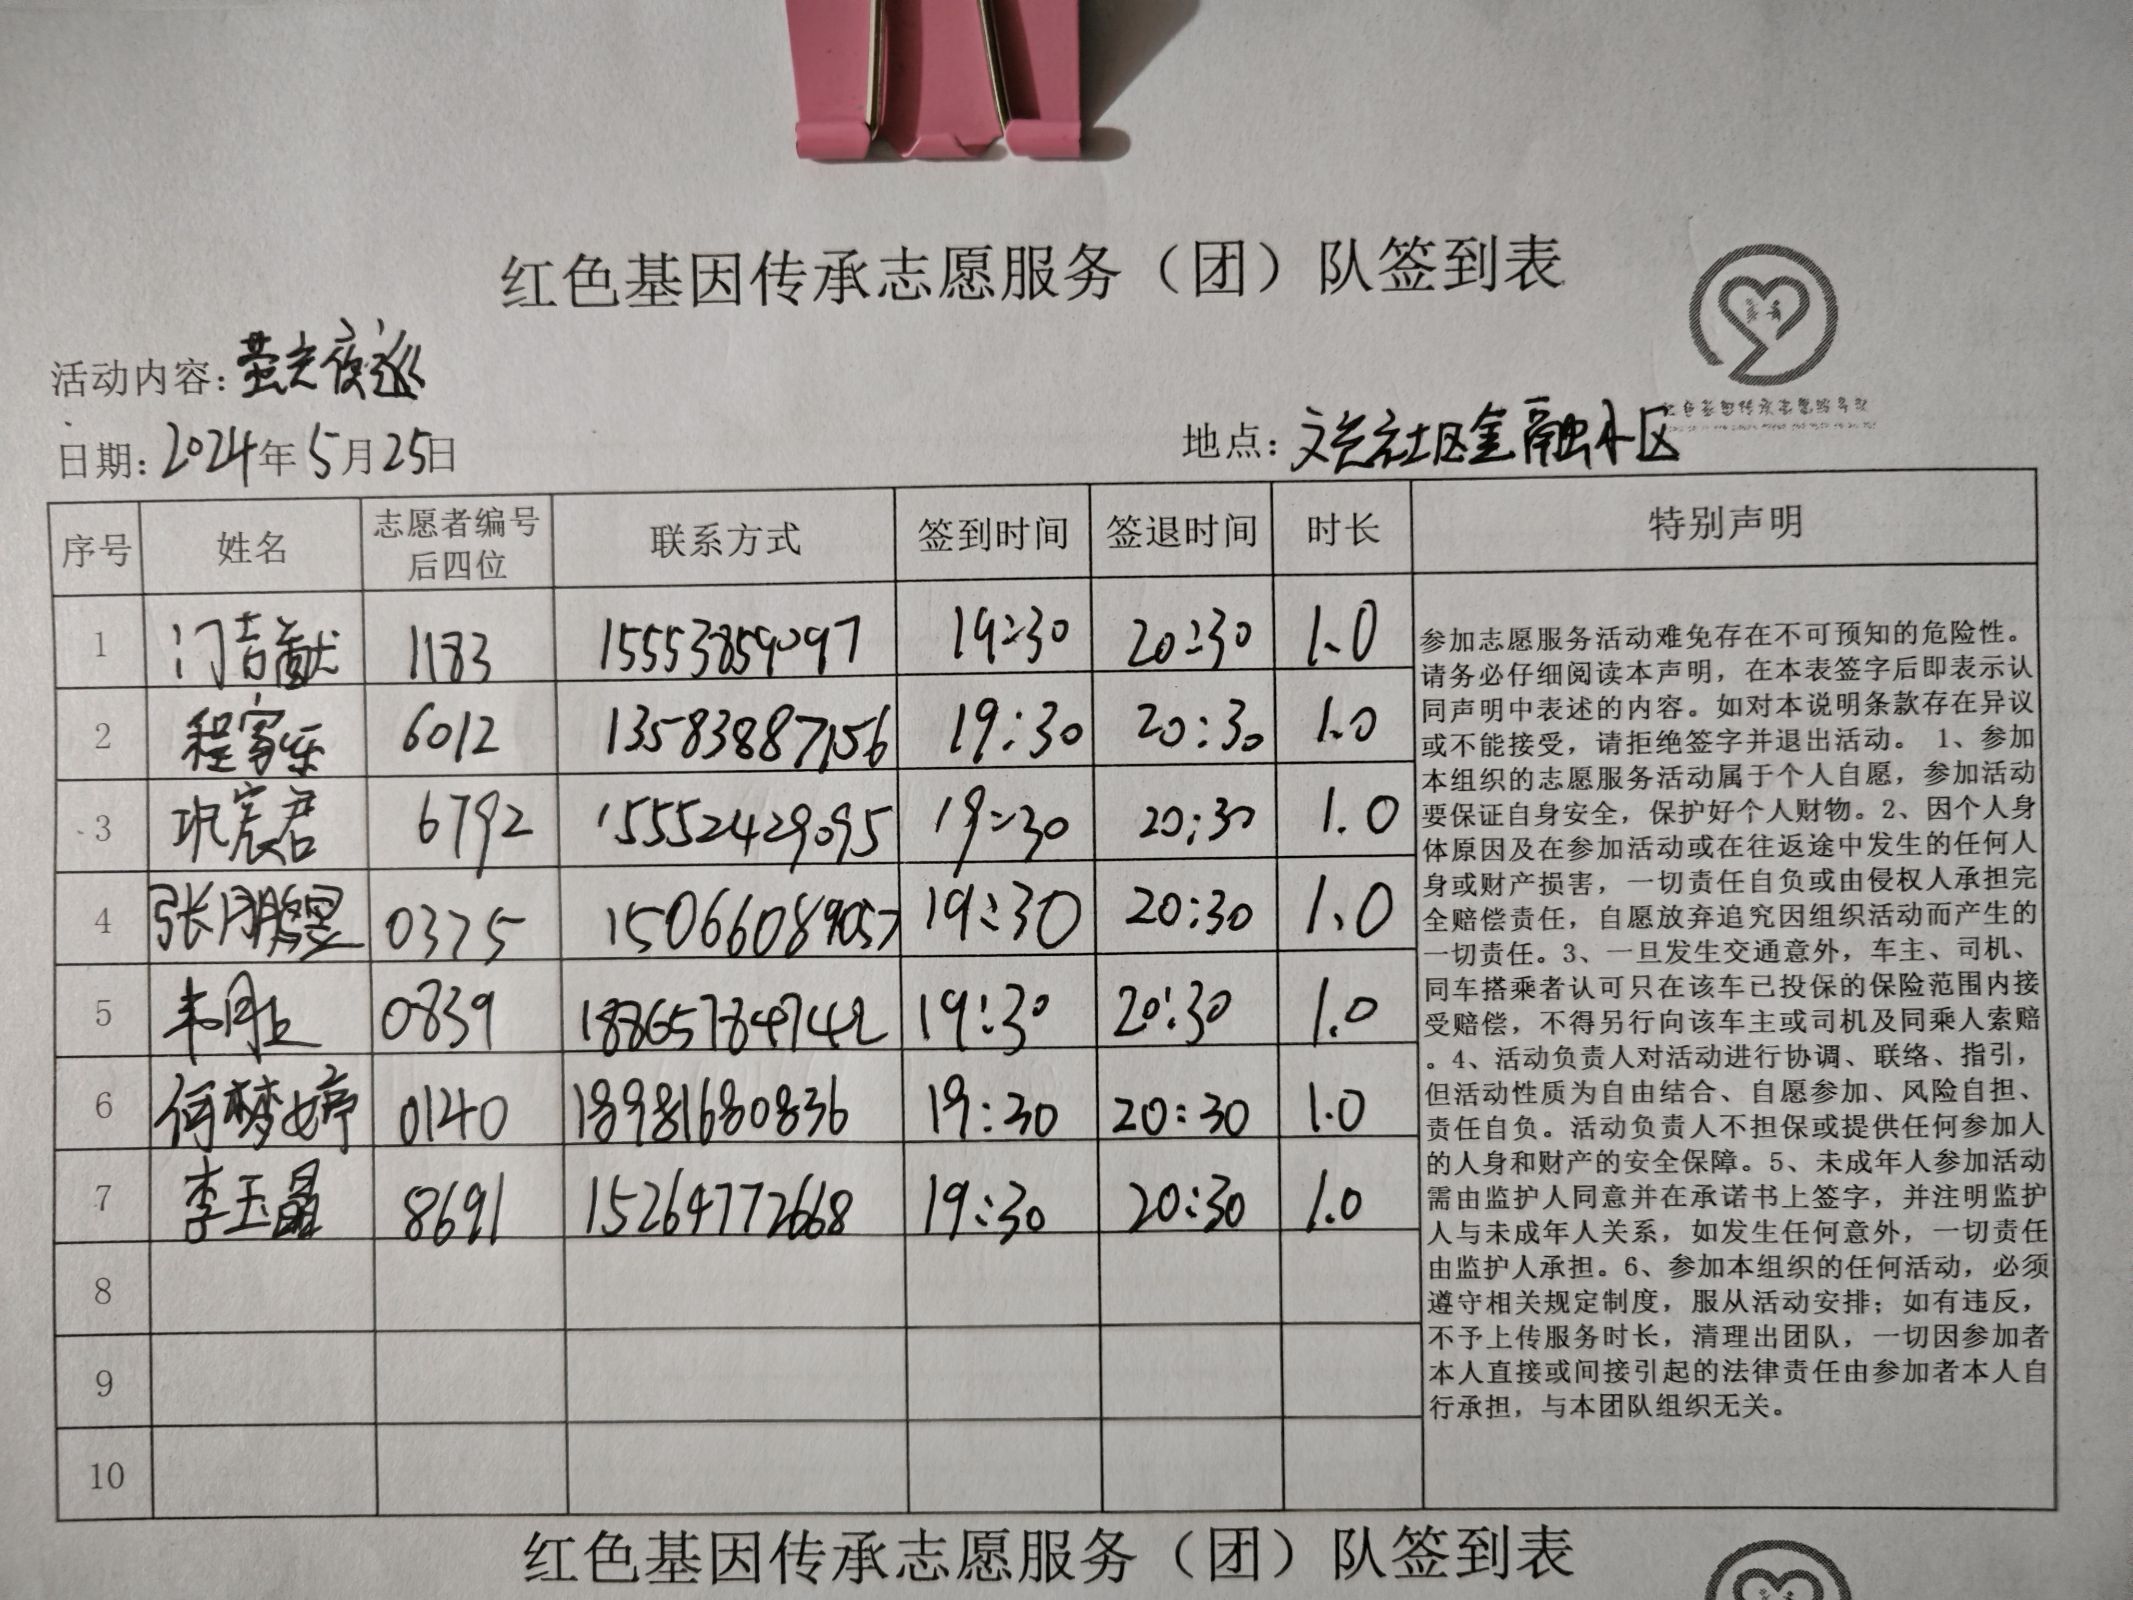 红色基因传承志愿服务（团）队签到表
活动内容：萤光夜巡
日期：2024年5月25日
地点：文汇社区金融小区
序号 姓名 志愿者编号后四位 联系方式 签到时间 签退时间 时长 特别声明
1 门吉献 1183 15553859097 19:30 20:30 1.0
2 程家乐 6012 13583887156 19:30 20:30 1.0
3 巩宸君 6792 15552429095 19:30 20:30 1.0
4 张 0375 15066089057 19:30 20:30 1.0
5 0839 18865784742 19:30 20:30 1.0
6 何梦婷 0140 18981680836 19:30 20:30 1.0
7 李玉晶 8691 15264772668 19:30 20:30 1.0
8
9
10
参加志愿服务活动难免存在不可预知的危险性。
请务必仔细阅读本声明，在本表签字后即表示认
同声明中表述的内容。如对本说明条款存在异议
或不能接受，请拒绝签字并退出活动。 1、参加
本组织的志愿服务活动属于个人自愿，参加活动
要保证自身安全，保护好个人财物。2、因个人身
体原因及在参加活动或在往返途中发生的任何人
身或财产损害，一切责任自负或由侵权人承担完
全赔偿责任，自愿放弃追究因组织活动而产生的
一切责任。3、一旦发生交通意外，车主、司机、
同车搭乘者认可只在该车已投保的保险范围内接
受赔偿，不得另行向该车主或司机及同乘人索赔
。4、活动负责人对活动进行协调、联络、指引，
但活动性质为自由结合、自愿参加、风险自担、
责任自负。活动负责人不担保或提供任何参加人
的人身和财产的安全保障。5、未成年人参加活动
需由监护人同意并在承诺书上签字，并注明监护
人与未成年人关系，如发生任何意外，一切责任
由监护人承担。6、参加本组织的任何活动，必须
遵守相关规定制度，服从活动安排；如有违反，
不予上传服务时长，清理出团队，一切因参加者
本人直接或间接引起的法律责任由参加者本人自
行承担，与本团队组织无关。
红色基因传承志愿服务（团）队签到表